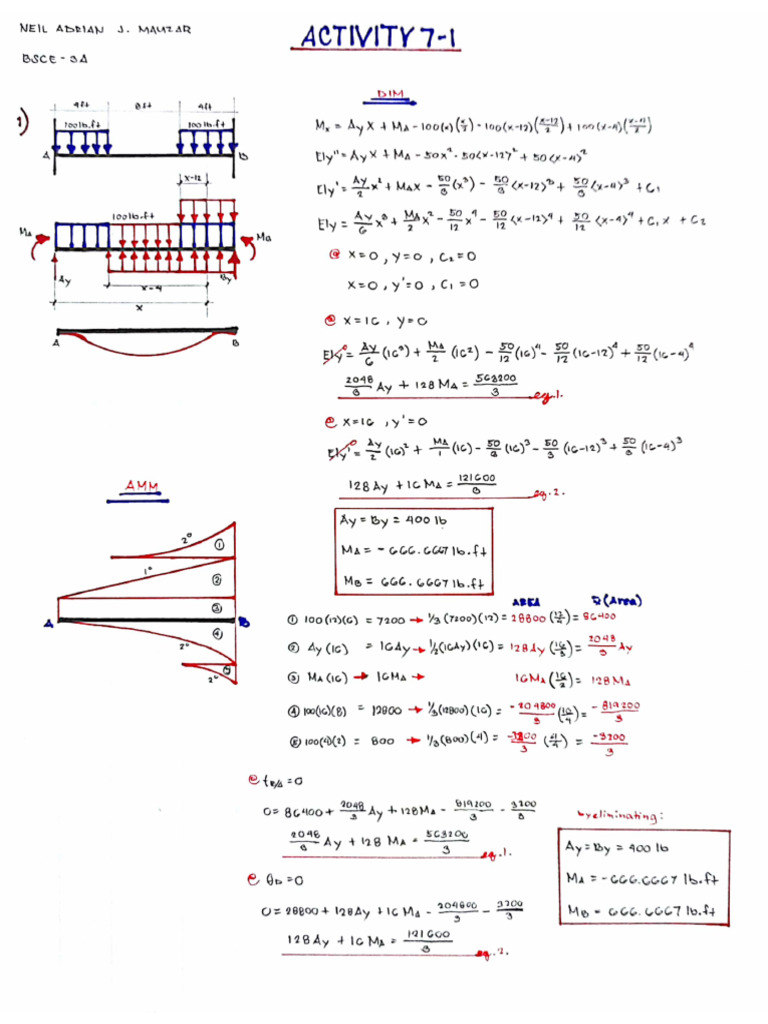 NEIL ADRIAN J. MAUZAR
BSCE - 3A
ACTIVITY 7-1
1)
4ft 8ft 4ft
100lb.ft 100lb.ft
A B
x-12
100lb.ft
MA MB
Ay By
x-4
x
A B
DIM
Mx = Ay x + MA - 100(x)(x/2) - 100(x-12)(x-12/2) + 100(x-4)(x-4/2)
EIy'' = Ay x + MA - 50x² - 50<x-12>² + 50<x-4>²
EIy' = Ay/2 x² + MA x - 50/3 (x³) - 50/3 <x-12>³ + 50/3 <x-4>³ + C1
EIy = Ay/6 x³ + MA/2 x² - 50/12 x⁴ - 50/12 <x-12>⁴ + 50/12 <x-4>⁴ + C1 x + C2
@ x=0, y=0, C2=0
x=0, y'=0, C1=0
@ x=16, y=0
EIy⁰ = Ay/6 (16³) + MA/2 (16²) - 50/12 (16)⁴ - 50/12 (16-12)⁴ + 50/12 (16-4)⁴
2048/3 Ay + 128 MA = 563200/3 eq.1.
@ x=16, y'=0
EIy'⁰ = Ay/2 (16)² + MA/1 (16) - 50/3 (16)³ - 50/3 (16-12)³ + 50/3 (16-4)³
128 Ay + 16 MA = 121600/3 eq.2.
Ay = By = 400 lb
MA = - 666.6667 lb.ft
MB = 666.6667 lb.ft
AMM
2° ①
1° ②
③
A B
④
2°
⑤
2°
AREA x̄(Area)
① 100(12)(6) = 7200 → 1/3(7200)(12) = 28800 (12/4) = 86400
② Ay(16) = 16Ay → 1/2(16Ay)(16) = 128Ay (16/3) = 2048/3 Ay
③ MA(16) → 16MA → 16MA (16/2) = 128 MA
④ 100(16)(8) = 12800 → 1/3(12800)(16) = -204800/3 (16/4) = -819200/3
⑤ 100(4)(2) = 800 → 1/3(800)(4) = -3200/3 (4/4) = -3200/3
@ tB/A = 0
0 = 86400 + 2048/3 Ay + 128MA - 819200/3 - 3200/3
2048/3 Ay + 128 MA = 563200/3 eq.1.
@ θB = 0
0 = 28800 + 128Ay + 16 MA - 204800/3 - 3200/3
128 Ay + 16 MA = 121600/3 eq.2.
By eliminating:
Ay = By = 400 lb
MA = -666.6667 lb.ft
MB = 666.6667 lb.ft